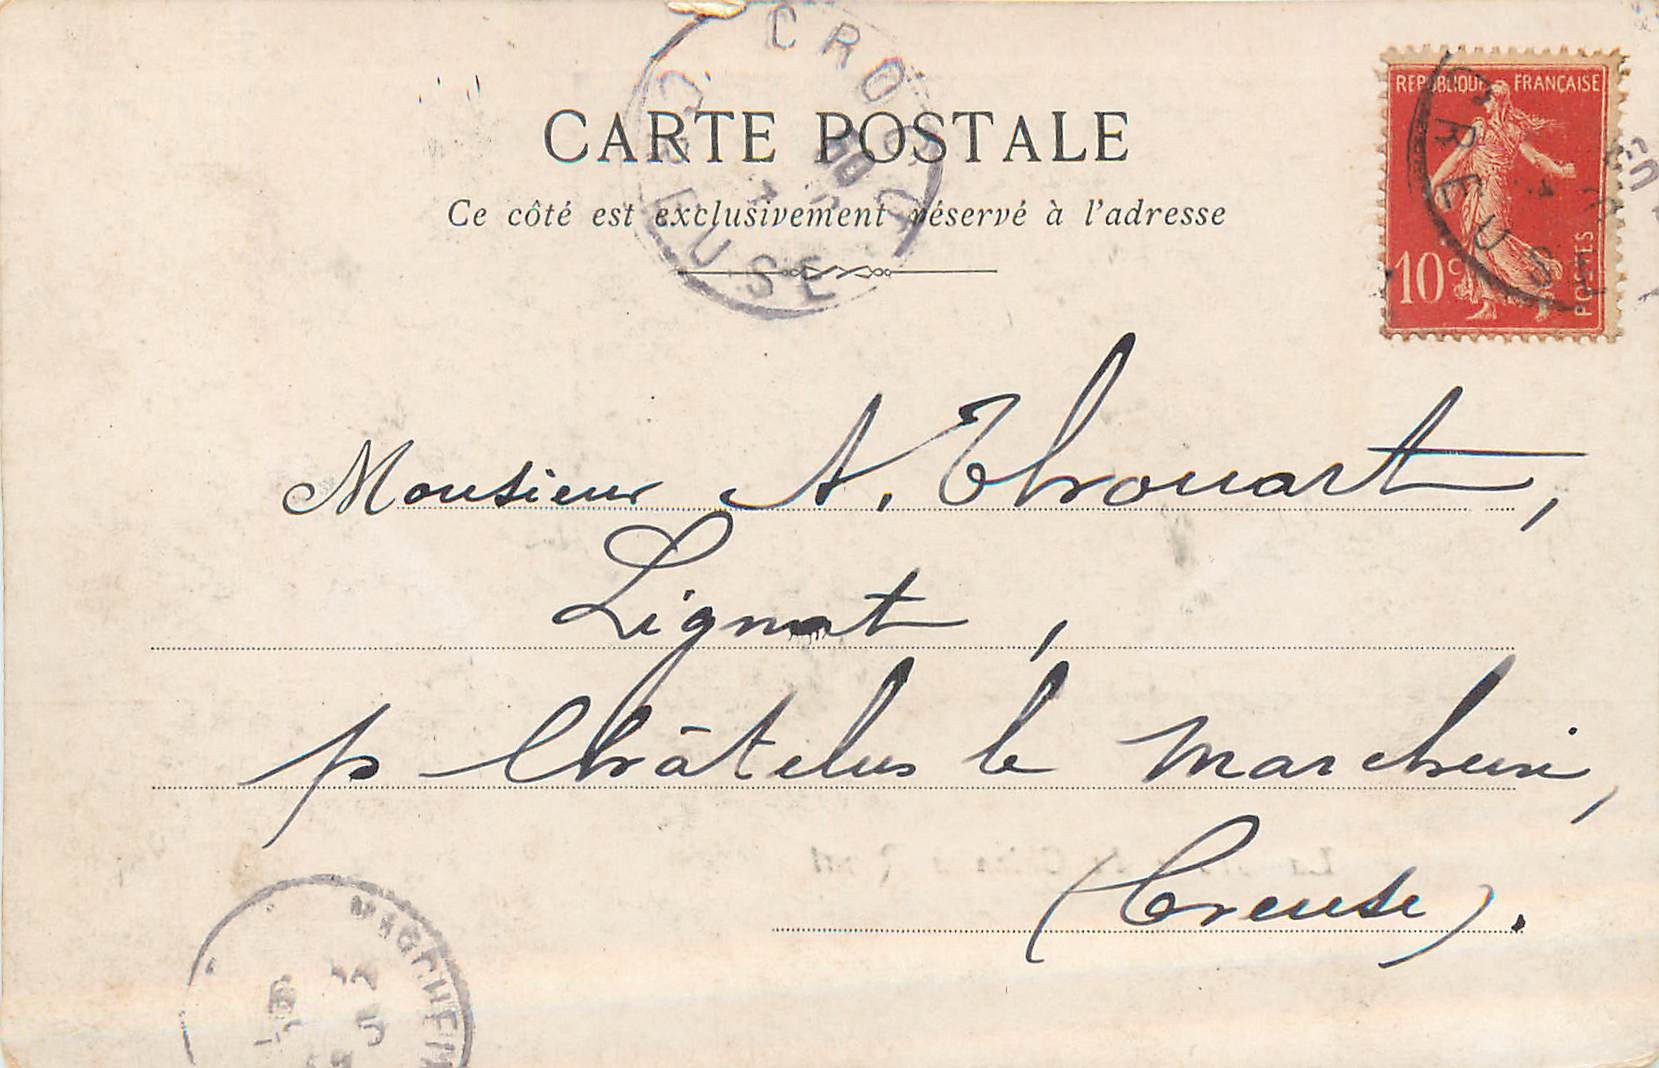 CARTE POSTALE
Ce côté est exclusivement réservé à l'adresse
REPUBLIQUE FRANÇAISE
10c
POSTES
CROCQ
CREUSE
CREUSE
Monsieur A. Throuart,
Lignat,
p Châtelus le Marcheix,
(Creuse).